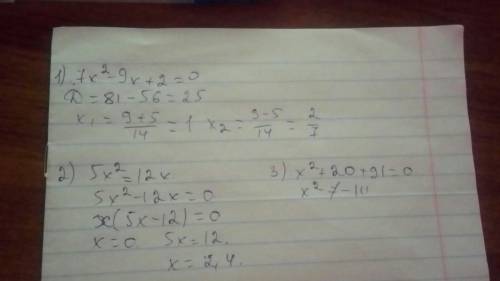 1) 7x²-9x+2=0
D=81-56=25
x₁=(9+5)/14=1 x₂=(9-5)/14=2/7
2) 5x²=12x
5x²-12x=0
x(5x-12)=0
x=0 5x=12.
x=2,4.
3) x²+20+91=0
x²-7-